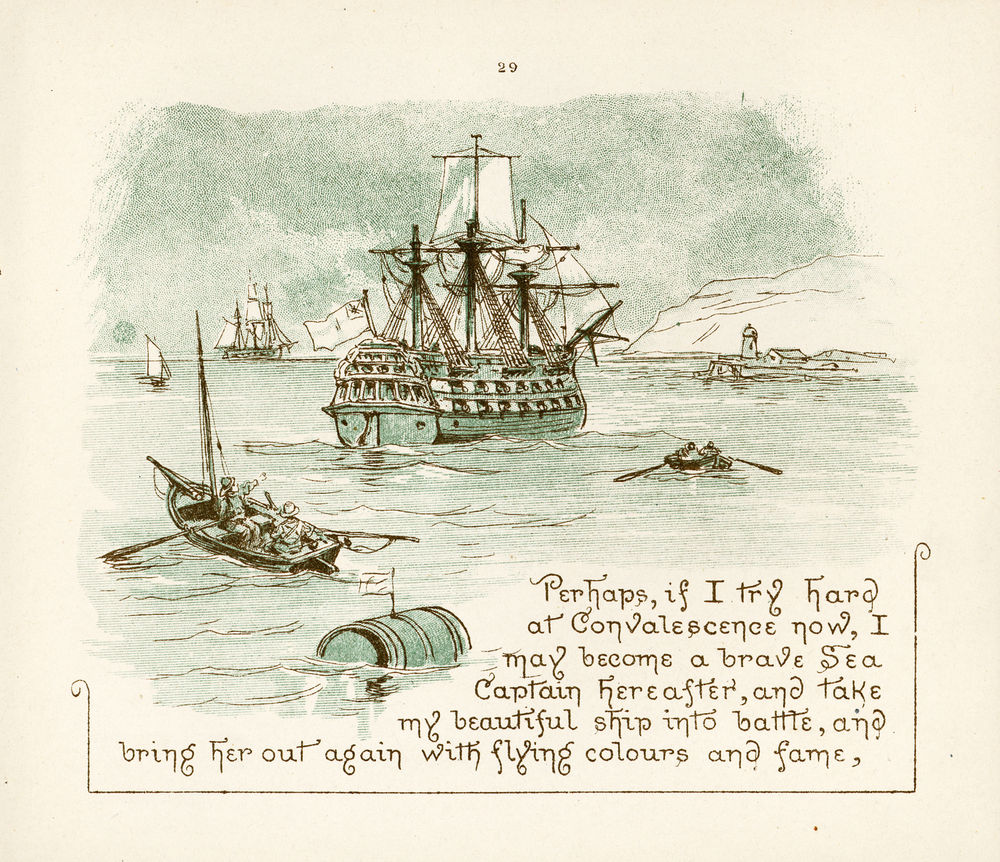 29
Perhaps, if I try hard
at Convalescence now, I
may become a brave Sea
Captain hereafter, and take
my beautiful ship into battle, and
bring her out again with flying colours and fame,